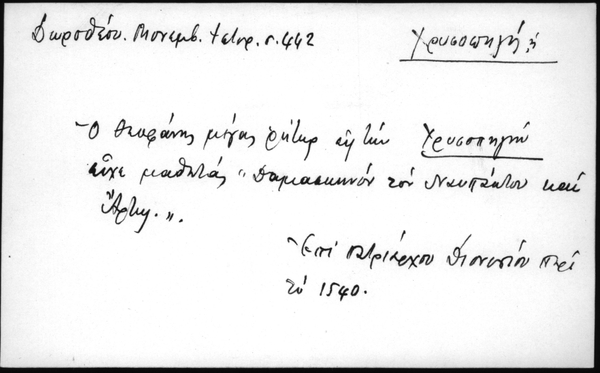 Δωροθέου. Μονεμβ. χειρ. σ. 442
Χρυσοπηγή, ἡ
Ὁ Θεοφάνης μέγας ῥήτωρ εἰς τὴν Χρυσοπηγὴν
εἶχε μαθητὰς "Δαμασκηνὸν τὸν Ναυπάκτου καὶ
Ἄρτης.".
Ἐπὶ Πατριάρχου Διονυσίου περὶ
τὸ 1540.